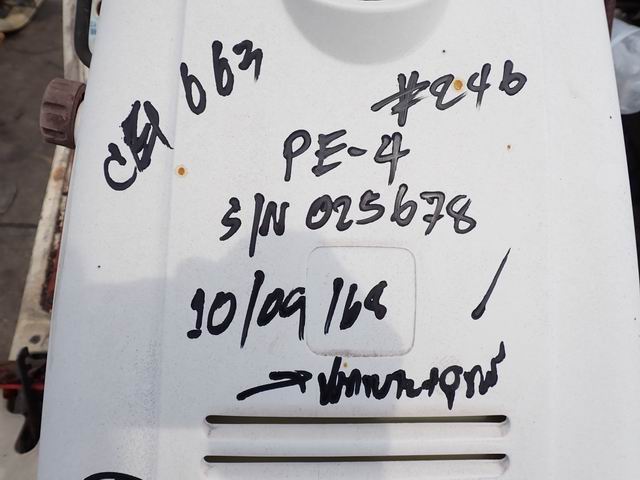 663
#246
PE-4
S/N 025678
10/09/68